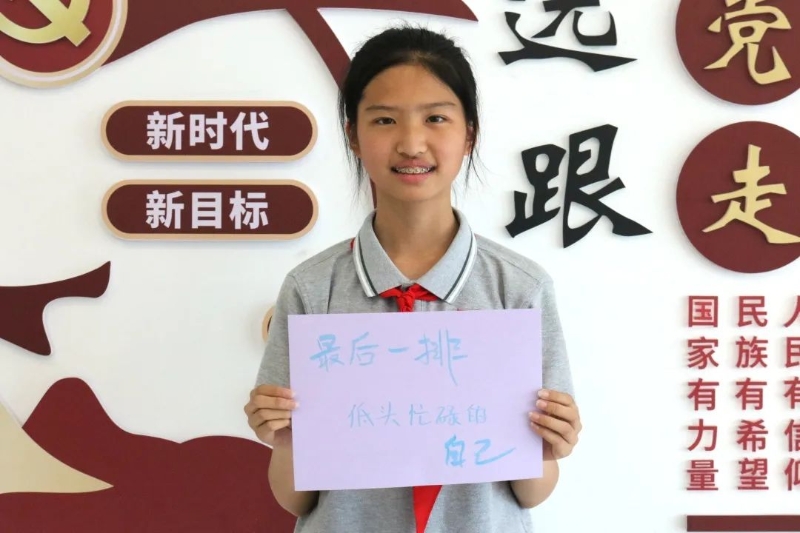 新时代
新目标
远
跟
党
走
人民有信仰
民族有希望
国家有力量
最后一排
低头忙碌的
自己